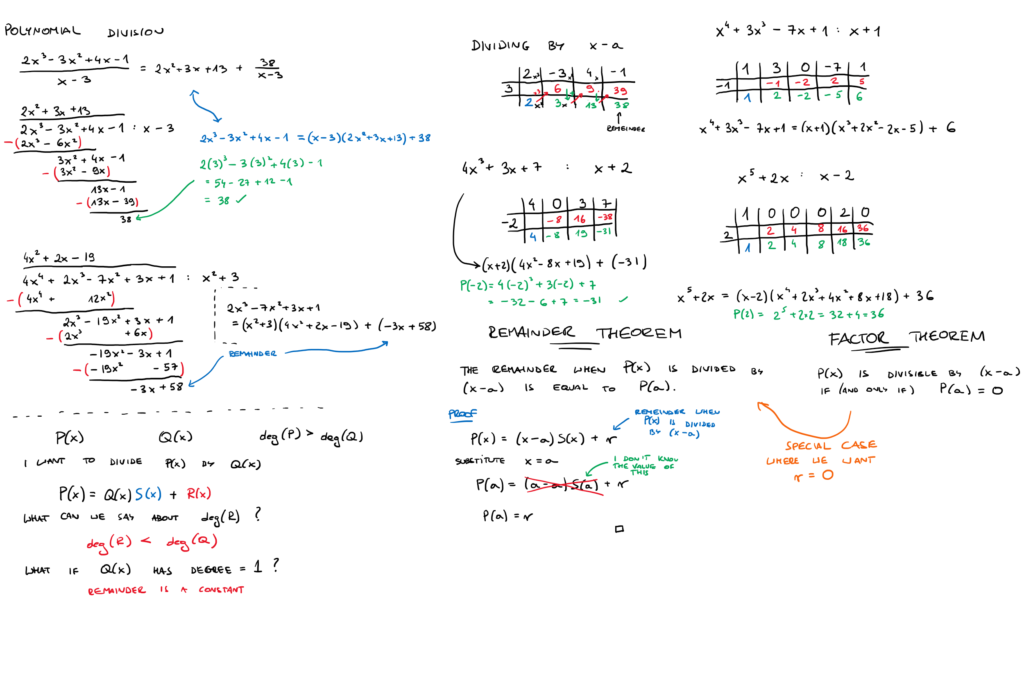 POLYNOMIAL DIVISION
2x³ - 3x² + 4x - 1 / x - 3 = 2x² + 3x + 13 + 38 / x - 3
2x² + 3x + 13
2x³ - 3x² + 4x - 1 : x - 3
- (2x³ - 6x²)
3x² + 4x - 1
- (3x² - 9x)
13x - 1
- (13x - 39)
38
2x³ - 3x² + 4x - 1 = (x-3)(2x² + 3x + 13) + 38
2(3)³ - 3(3)² + 4(3) - 1
= 54 - 27 + 12 - 1
= 38 ✓
4x² + 2x - 19
4x⁴ + 2x³ - 7x² + 3x + 1 : x² + 3
- (4x⁴ 12x²)
2x³ - 19x² + 3x + 1
- (2x³ + 6x)
-19x² - 3x + 1
- (-19x² - 57)
-3x + 58
2x³ - 7x² + 3x + 1
= (x²+3)(4x² + 2x - 19) + (-3x + 58)
REMAINDER
P(x) Q(x) deg(P) > deg(Q)
I WANT TO DIVIDE P(x) BY Q(x)
P(x) = Q(x) S(x) + R(x)
WHAT CAN WE SAY ABOUT deg(R) ?
deg(R) < deg(Q)
WHAT IF Q(x) HAS DEGREE = 1 ?
REMAINDER IS A CONSTANT
DIVIDING BY x - a
2x³ -3x² 4x -1
3 6 9 39
2x² 3x 13 38
REMEINDER
4x³ + 3x + 7 : x + 2
4 0 3 7
-2 -8 16 -38
4 -8 19 -31
(x+2)(4x² - 8x + 19) + (-31)
P(-2) = 4(-2)³ + 3(-2) + 7
= -32 - 6 + 7 = -31 ✓
x⁴ + 3x³ - 7x + 1 : x + 1
1 3 0 -7 1
-1 -1 -2 2 5
1 2 -2 -5 6
x⁴ + 3x³ - 7x + 1 = (x+1)(x³ + 2x² - 2x - 5) + 6
x⁵ + 2x : x - 2
1 0 0 0 2 0
2 2 4 8 16 36
1 2 4 8 18 36
x⁵ + 2x = (x-2)(x⁴ + 2x³ + 4x² + 8x + 18) + 36
P(2) = 2⁵ + 2·2 = 32 + 4 = 36
REMAINDER THEOREM
THE REMAINDER WHEN P(x) IS DIVIDED BY
(x-a) IS EQUAL TO P(a).
PROOF
REMEINDER WHEN
P(x) IS DIVIDED
BY (x-a)
P(x) = (x-a) S(x) + r
SUBSTITUTE x = a
I DON'T KNOW
THE VALUE OF
THIS
P(a) = (a-a) S(a) + r
P(a) = r
□
FACTOR THEOREM
P(x) IS DIVISIBLE BY (x-a)
IF (AND ONLY IF) P(a) = 0
SPECIAL CASE
WHERE WE WANT
r = 0